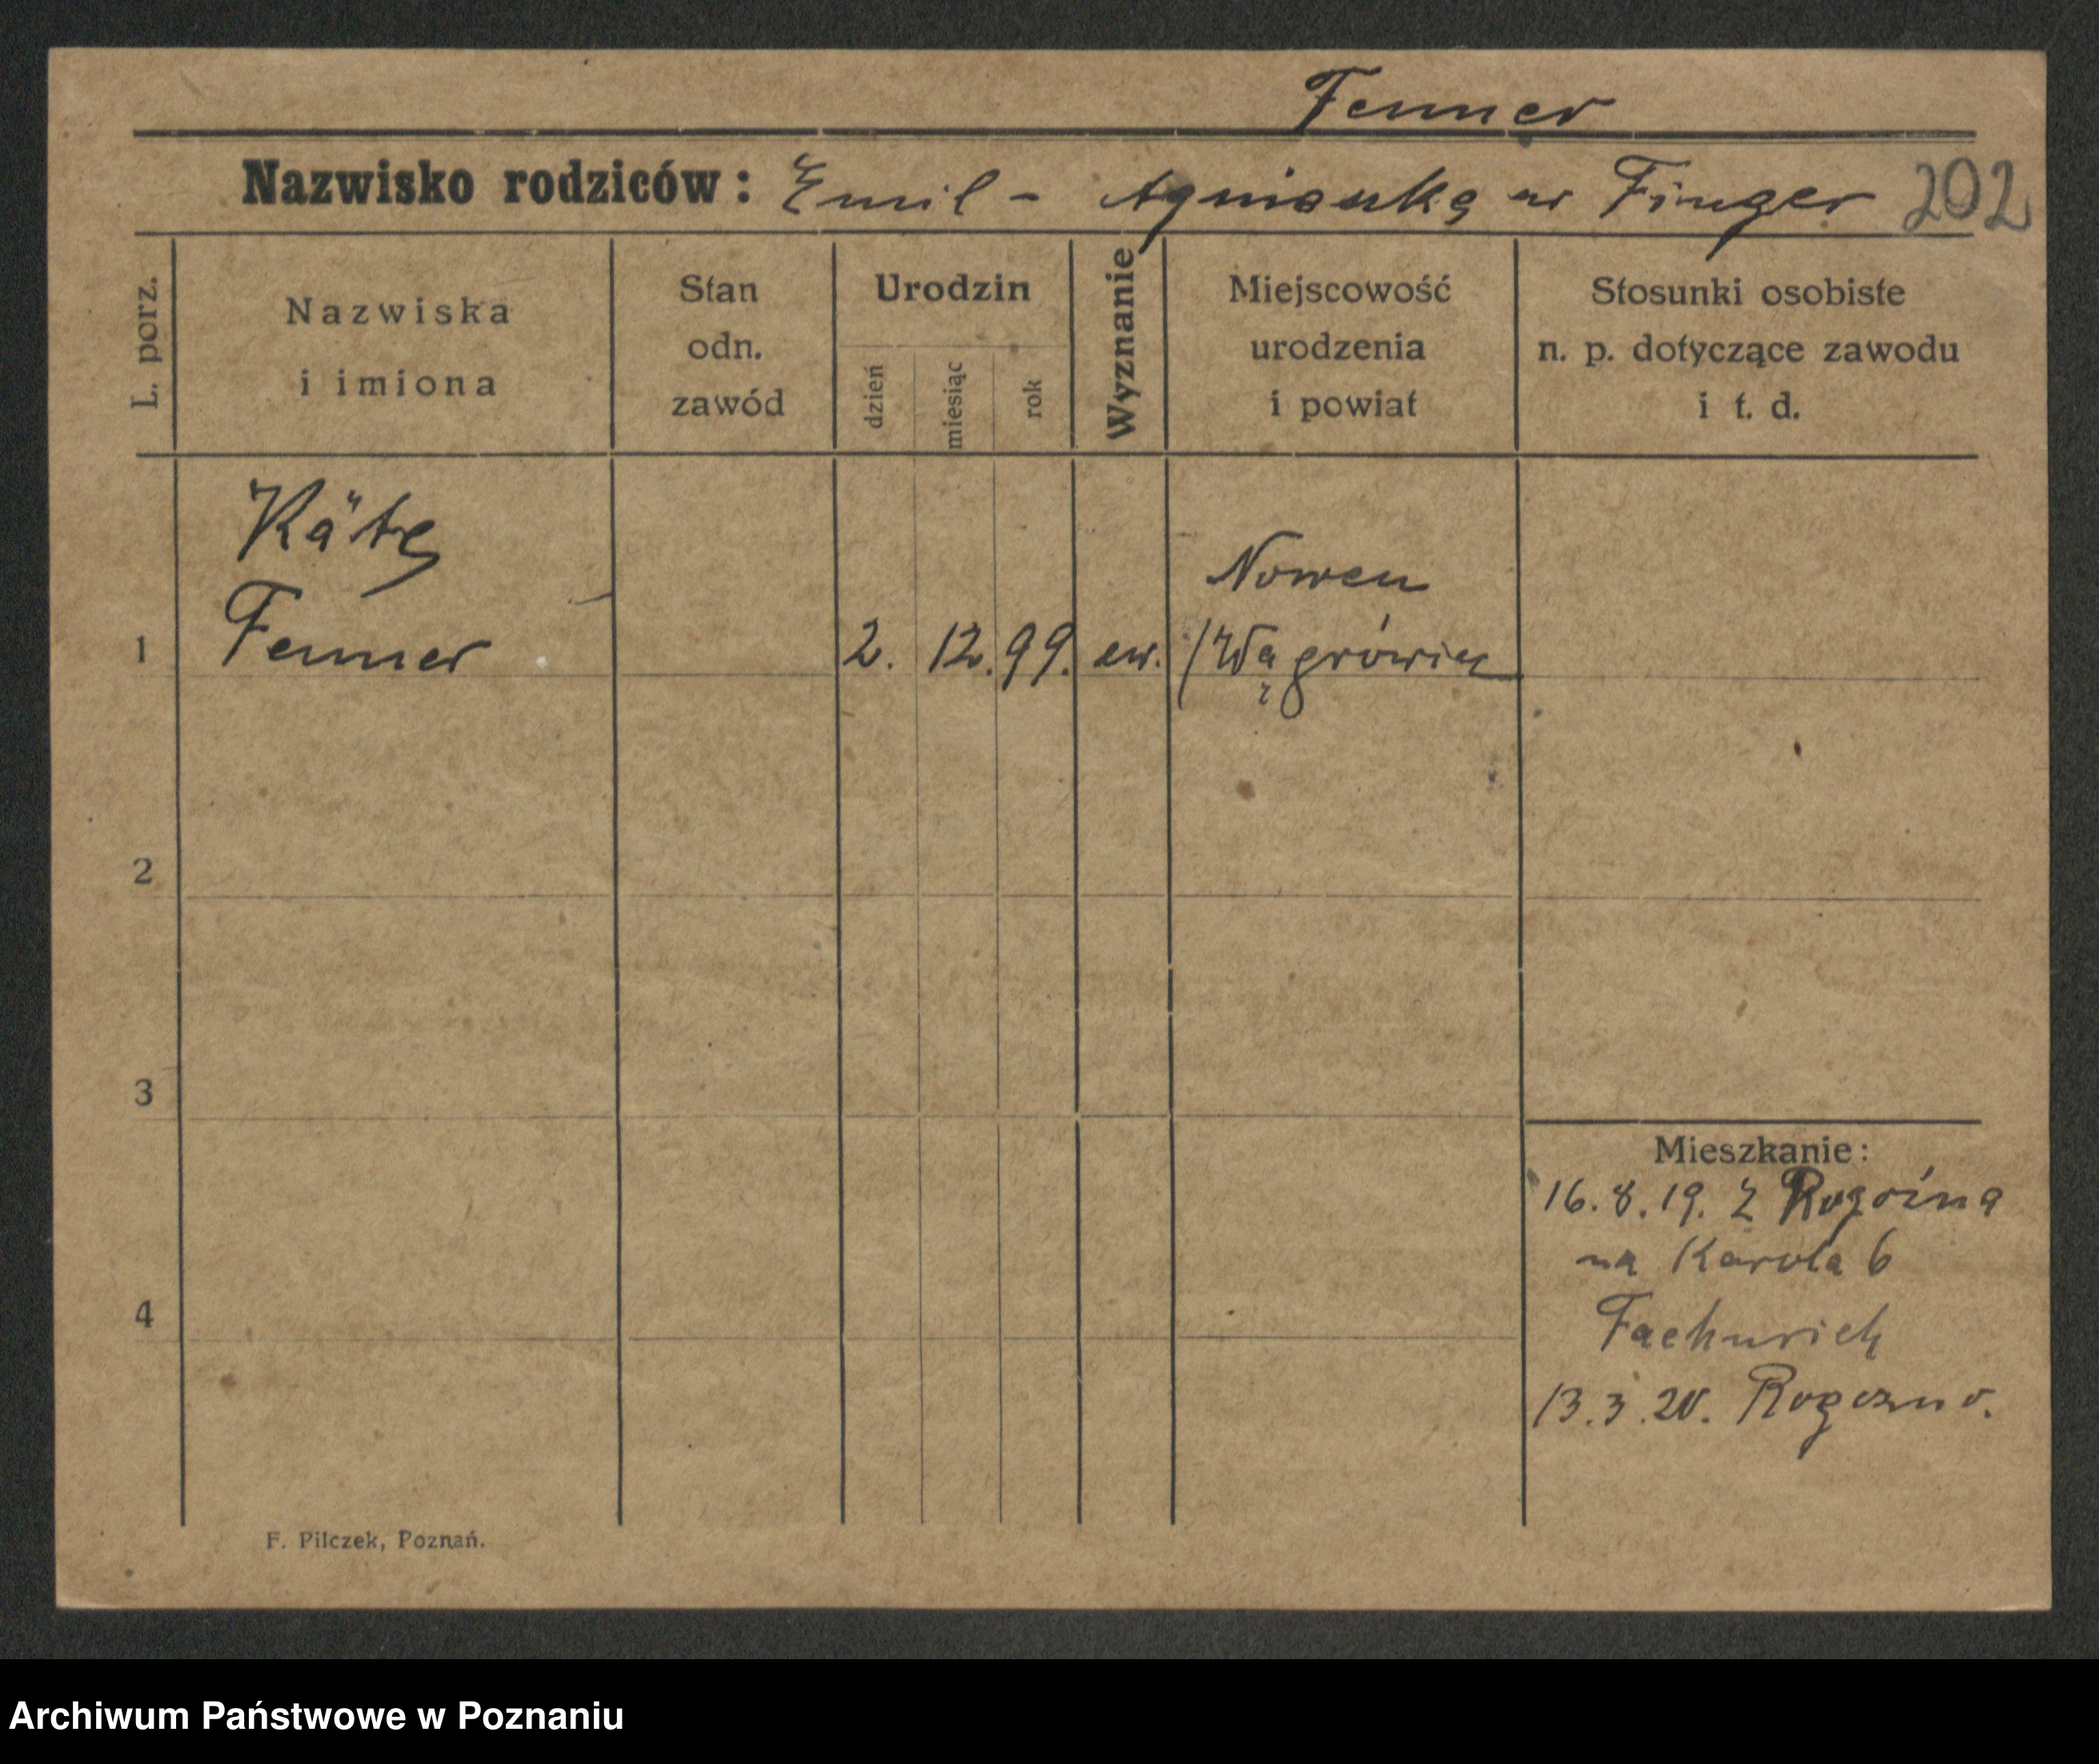 Fenner
Nazwisko rodziców: Emil - Agnieszka ur Finger 202
L. porz.
Nazwiska
i imiona
Stan
odn.
zawód
Urodzin
dzień
miesiąc
rok
Wyznanie
Miejscowość
urodzenia
i powiat
Stosunki osobiste
n. p. dotyczące zawodu
i t. d.
Käte
Fenner
1
2. 12. 99. ew.
Nowen
/Wągrówiec
2
3
4
Mieszkanie:
16.8.19. z Rogoźna
na Karola 6
13.3.20. Rogozno.
F. Pilczek, Poznań.
Archiwum Państwowe w Poznaniu